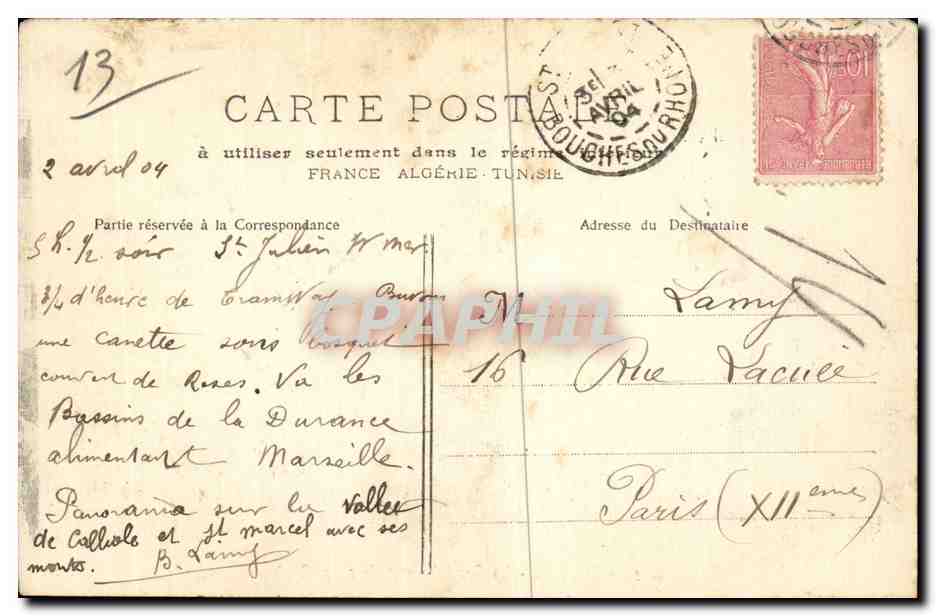 13
CARTE POSTALE
à utiliser seulement dans le régime
FRANCE ALGÉRIE - TUNISIE
ST
3E/
AVRIL
04
BOUCHES DU RHONE
10c
2 avril 04
Partie réservée à la Correspondance
5 h. 1/2 soir St Julien
3/4 d'heure de tramway Buvons
une canette sous bosquet
couvert de Roses. Vu les
Bassins de la Durance
alimentant Marseille.
Panorama sur la Vallée
de et St marcel avec ses
monts. B. Lamy
Adresse du Destinataire
M Lamy
16 Rue Lacuée
Paris (XIIeme)
CPAPHIL